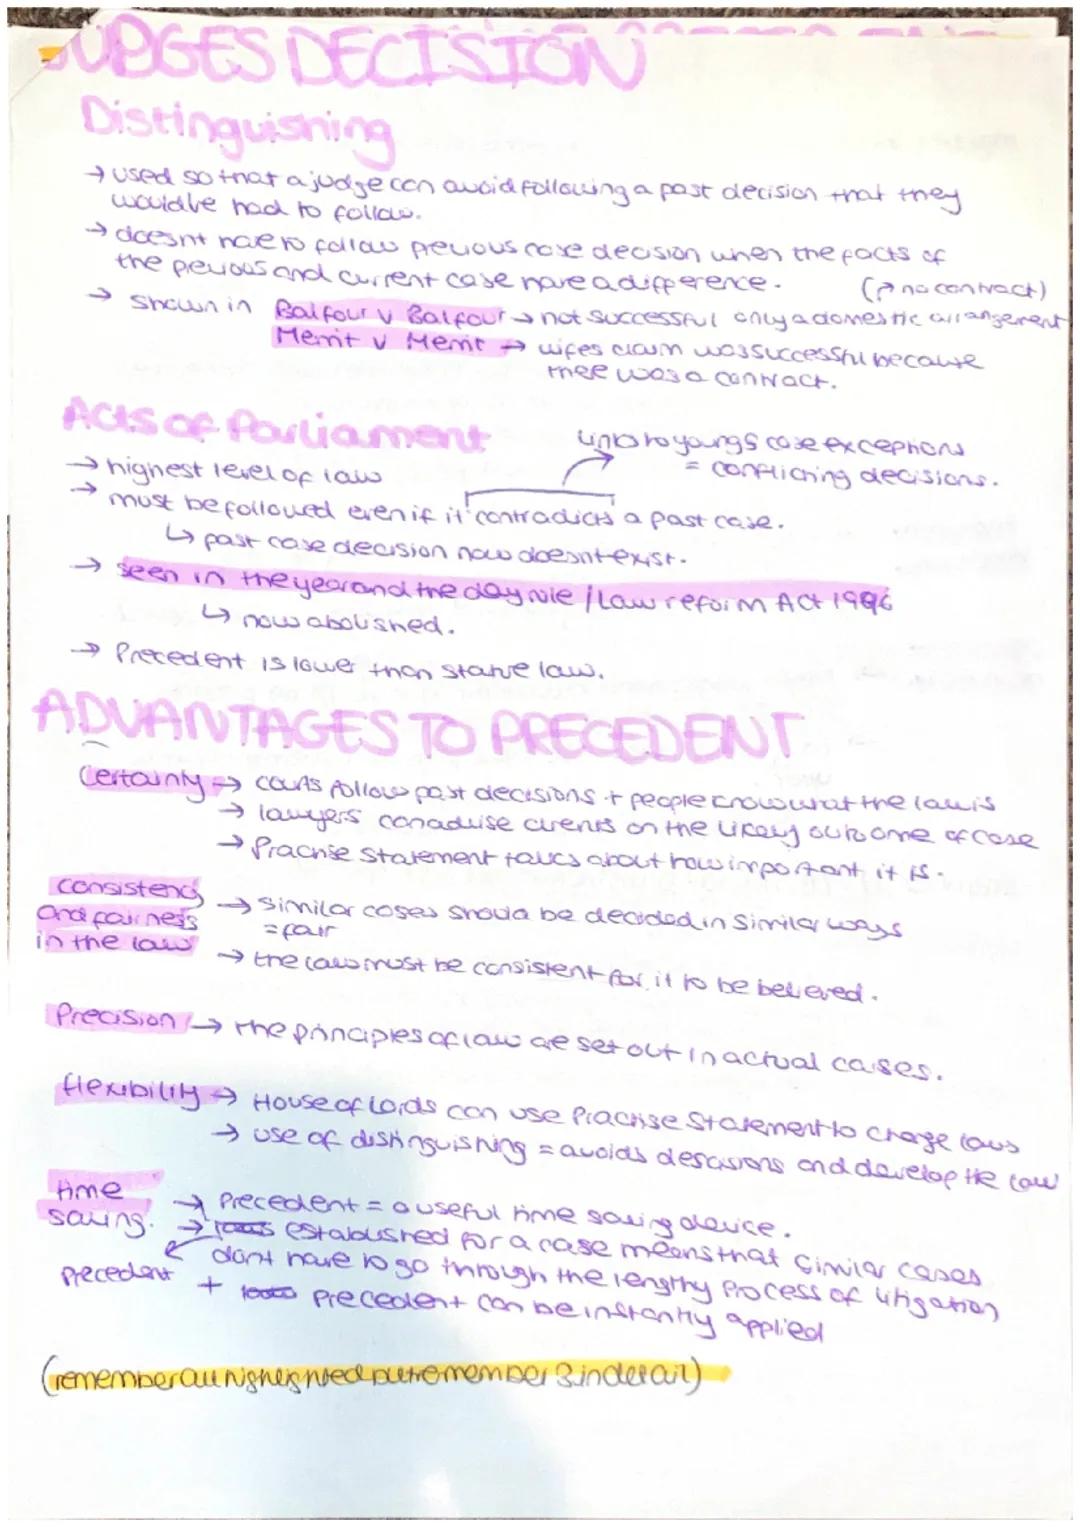 JUDGES DECISION
Distinguishing
→ used so that a judge can avoid following a past decision that they
would've had to follow.
→ doesnt have to follow previous case decision when the facts of
the previous and current case have a difference.
(→ no contract)
→ shown in Balfour v Balfour → not successful only a domestic arrangement
Merrit v Merrit → wifes claim was successful because
there was a contract.
Acts of Parliament
links to youngs case exceptions
= conflicting decisions.
→ highest level of law
→ must be followed even if it contradicts a past case.
↳ past case decision now doesnt exist.
→ seen in the year and the day rule / Law reform Act 1996
↳ now abolished.
→ Precedent is lower than statue law.
ADVANTAGES TO PRECEDENT
Certainty → courts follow past decisions + people know what the law is
→ lawyers can advise clients on the likely outcome of case
→ Practise Statement talks about how important it is.
Consistency
and fairness
in the law
→ similar cases should be decided in similar ways
= fair
→ the law must be consistent for it to be believed.
Precision → the principles of law are set out in actual cases.
flexibility → House of Lords can use Practise Statement to change laws
→ use of distinguishing = avoids descisions and develop the law
time
saving.
→ Precedent = a useful time saving device.
→ established for a case means that similar cases
dont have to go through the lengthy process of litigation
precedent
+ precedent can be instantly applied
(remember all highlighted but remember 3 in detail)